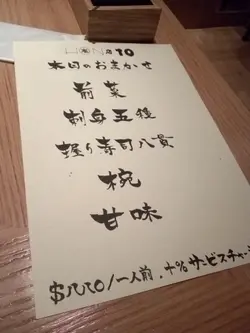 本日のおまかせ
前菜
刺身五種
握り寿司八貫
椀
甘味
/一人前、+%サービスチャー